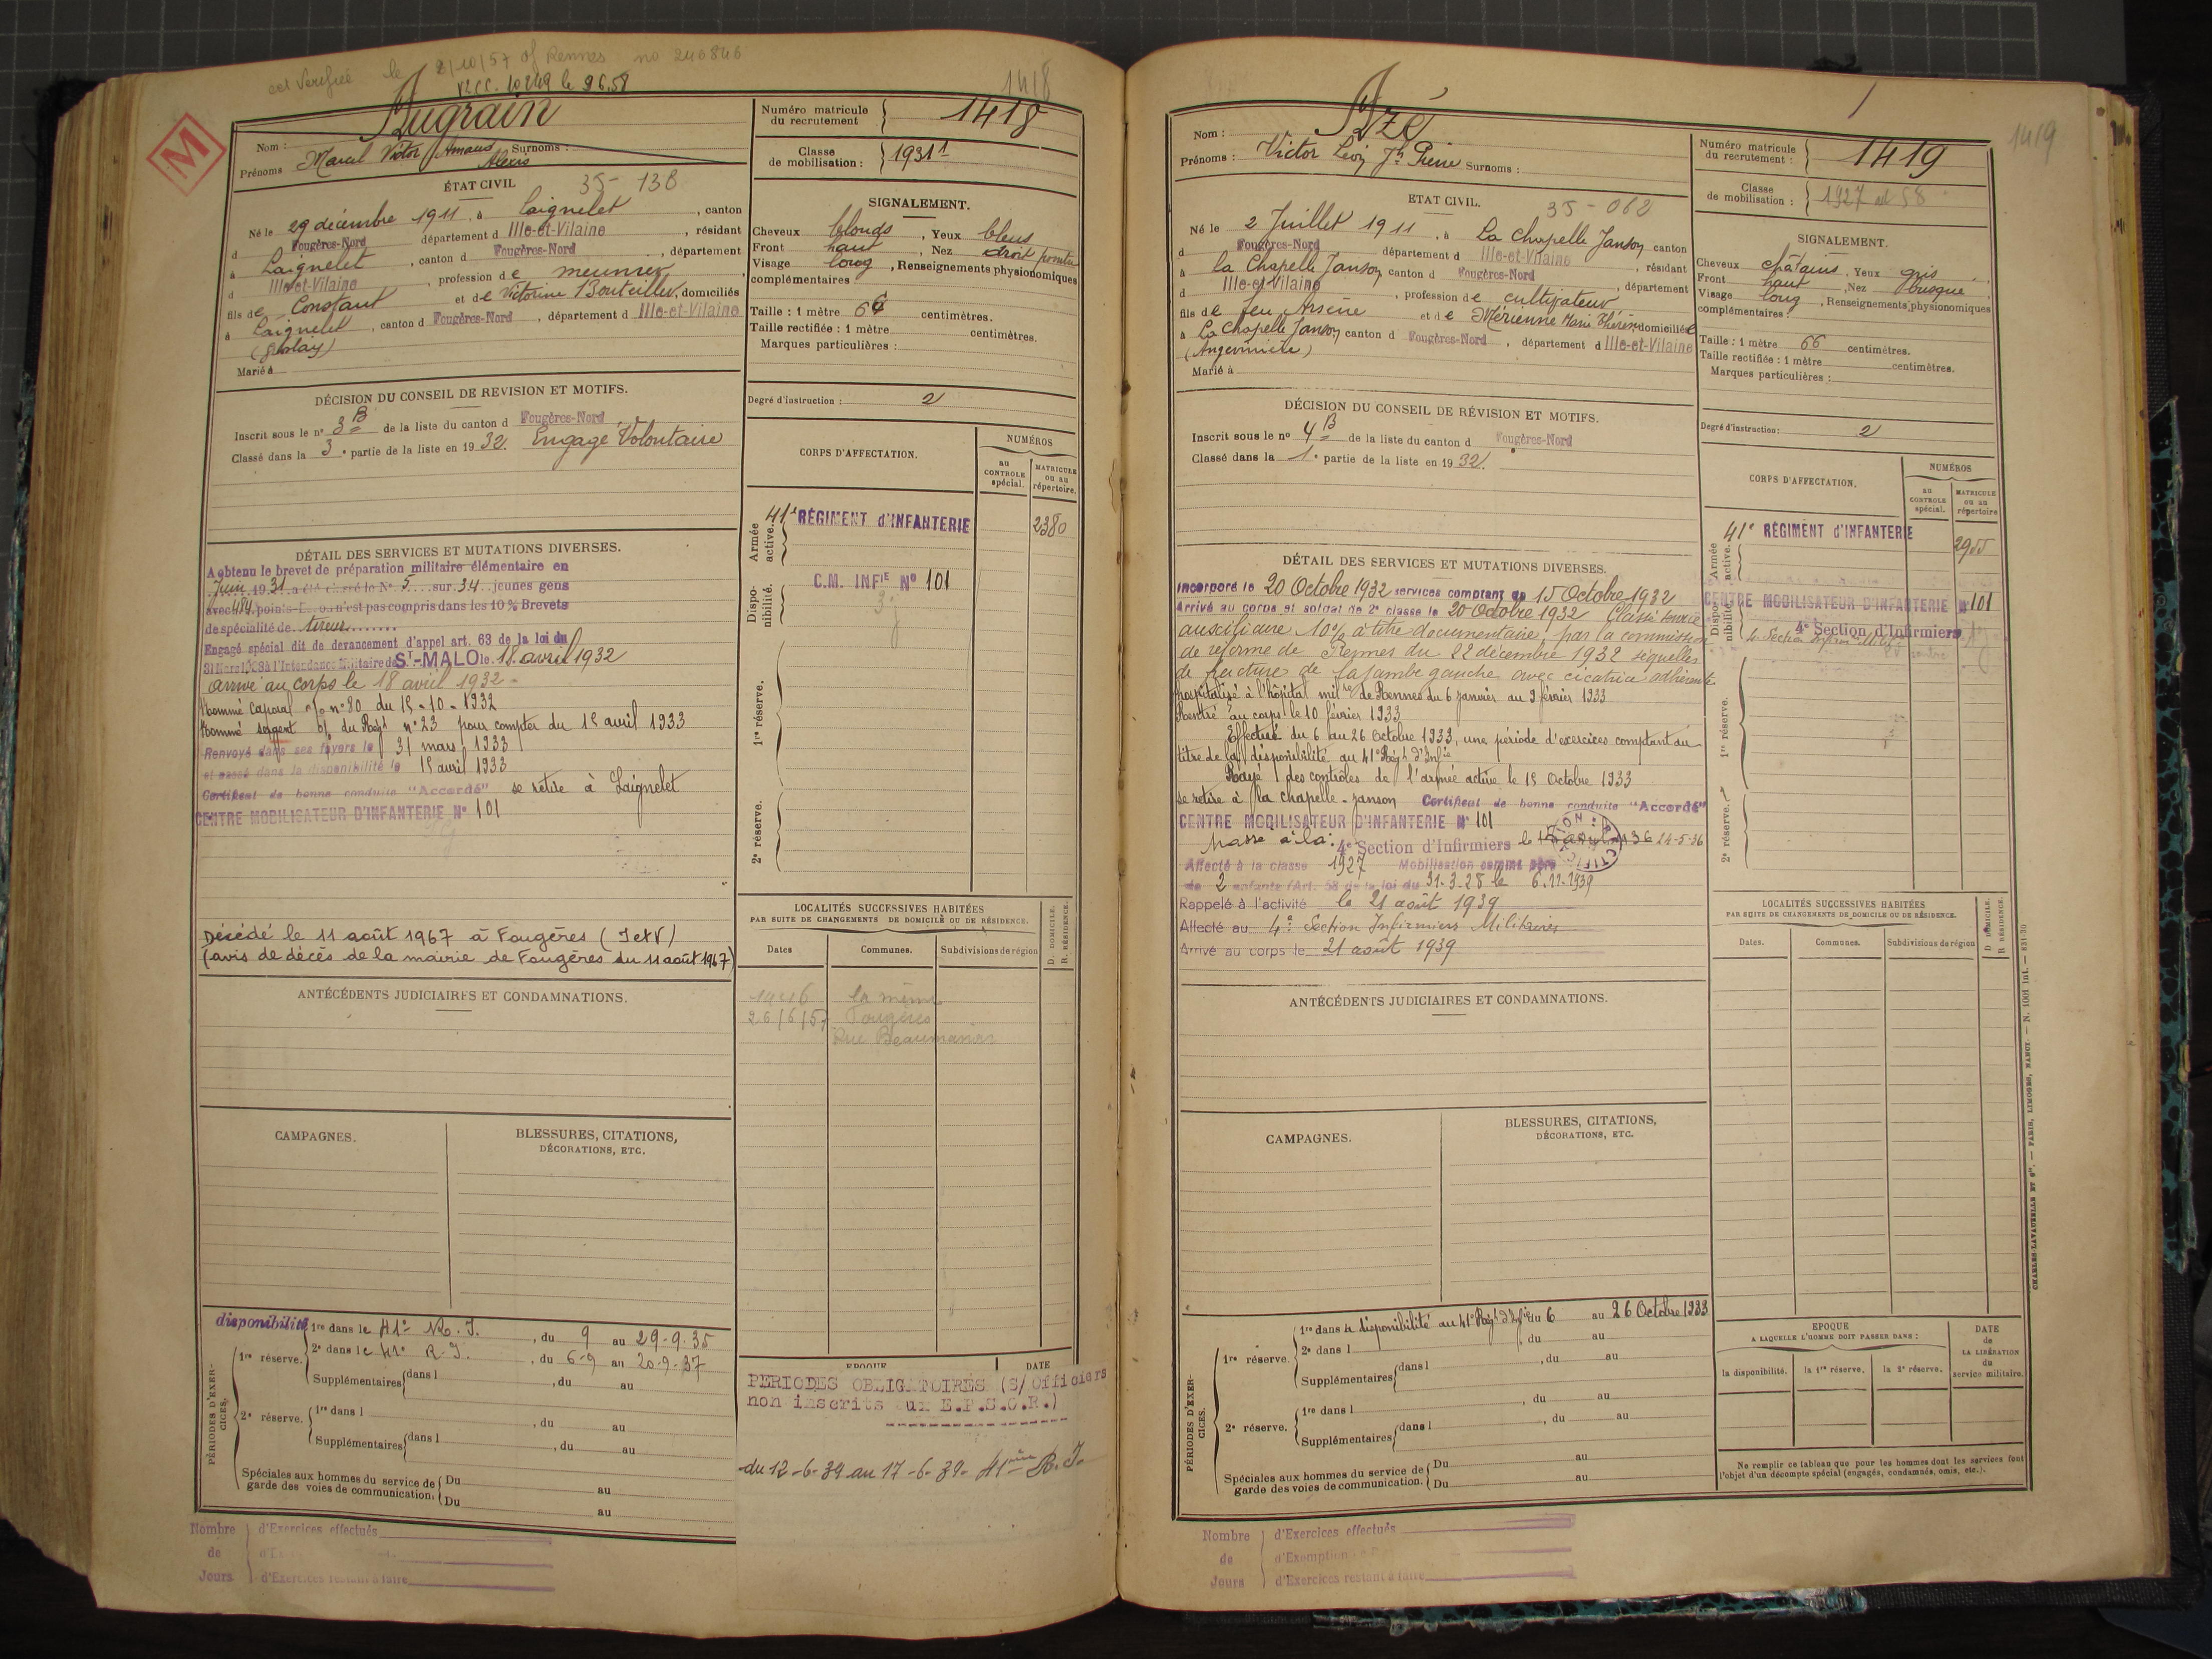 le 8/10/57 of Rennes no 240846
1418
Nom : Augrain
Prénoms Marcel Victor Amand Alexis Surnoms :
Numéro matricule du recrutement } 1418
Classe de mobilisation : } 1931
M
ÉTAT CIVIL 35 - 138
Né le 29 décembre 1911, à Laignelet, canton
d Fougères-Nord département d Ille-et-Vilaine, résidant
à Laignelet, canton d Fougères-Nord, département
d Ille-et-Vilaine, profession de meunier
fils de Constant et de Victorine Bouteiller, domiciliés
à Laignelet, canton d Fougères-Nord, département d Ille-et-Vilaine
Marié à
SIGNALEMENT.
Cheveux blonds, Yeux bleus
Front haut, Nez droit pointu
Visage long, Renseignements physionomiques
complémentaires
Taille : 1 mètre 66 centimètres.
Taille rectifiée : 1 mètre centimètres.
Marques particulières :
Degré d'instruction : 2
DÉCISION DU CONSEIL DE REVISION ET MOTIFS.
Inscrit sous le n° 3 B de la liste du canton d Fougères-Nord
Classé dans la 3e partie de la liste en 1932. Engagé Volontaire
CORPS D'AFFECTATION.
NUMÉROS
au CONTROLE spécial.
MATRICULE ou au répertoire.
Armée active. 41e RÉGIMENT d'INFANTERIE 2380
Disponibilité. C.M. INFIE N° 101
1re réserve.
2e réserve.
DÉTAIL DES SERVICES ET MUTATIONS DIVERSES.
A obtenu le brevet de préparation militaire élémentaire en
Juin 1931 a été classé le N° 5 sur 34 jeunes gens
avec 484 points - n'est pas compris dans les 10 % Brevets
de spécialité de tireur
Engagé spécial dit de devancement d'appel art. 63 de la loi du
31 Mars 1928 à l'Intendance Militaire de ST-MALO le 18 avril 1932
arrivé au corps le 18 avril 1932
Nommé Caporal n° 80 du 15-10-1932
Nommé sergent du Régt n° 23 pour compter du 15 avril 1933
Renvoyé dans ses foyers le 31 mars 1933
et passé dans la disponibilité le 15 avril 1933
Certificat de bonne conduite "Accordé" se retire à Laignelet
CENTRE MOBILISATEUR D'INFANTERIE N° 101
Décédé le 11 août 1967 à Fougères (I et V)
(avis de décès de la mairie de Fougères du 11 août 1967)
LOCALITÉS SUCCESSIVES HABITÉES
PAR SUITE DE CHANGEMENTS DE DOMICILE OU DE RÉSIDENCE.
Dates Communes. Subdivisions de région D. DOMICILE. R. RÉSIDENCE.
la même
26/6/57 Fougères
Rue Beaumanoir
ANTÉCÉDENTS JUDICIAIRES ET CONDAMNATIONS.
CAMPAGNES.
BLESSURES, CITATIONS,
DÉCORATIONS, ETC.
PÉRIODES D'EXERCICES.
disponibilité
1re réserve. 1re dans le 41e R.I., du 9 au 29-9-35
2e dans le 41e R.I., du 6-9 au 20-9-37
Supplémentaires dans l , du au
2e réserve. 1re dans l , du au
Supplémentaires dans l , du au
Spéciales aux hommes du service de garde des voies de communication. Du au
Du au
ÉPOQUE DATE
PERIODES OBLIGATOIRES (S/Officiers
non inscrits aux E.P.S.O.R.)
du 12-6-39 au 17-6-39 - 41ème R.I.
Nombre de Jours
d'Exercices effectués
d'Exercices restant à faire
1419
Nom : Azé
Prénoms : Victor Léon Jh Pierre Surnoms :
Numéro matricule du recrutement : } 1419
Classe de mobilisation : } 1927 art 58
ETAT CIVIL. 35 - 062
Né le 2 Juillet 1911, à La Chapelle Janson canton
d Fougères-Nord département d Ille-et-Vilaine, résidant
à la Chapelle Janson canton d Fougères-Nord, département
d Ille-et-Vilaine, profession de cultivateur
fils de feu Arsène et de Mérienne Marie Thérèse domiciliée
à La Chapelle Janson canton d Fougères-Nord, département d Ille-et-Vilaine
Marié à
SIGNALEMENT.
Cheveux châtains, Yeux gris
Front haut, Nez busqué
Visage long, Renseignements physionomiques
complémentaires :
Taille : 1 mètre 66 centimètres.
Taille rectifiée : 1 mètre centimètres.
Marques particulières :
Degré d'instruction : 2
DÉCISION DU CONSEIL DE RÉVISION ET MOTIFS.
Inscrit sous le n° 4 B de la liste du canton d Fougères-Nord
Classé dans la 1e partie de la liste en 1932.
CORPS D'AFFECTATION.
NUMÉROS
au CONTROLE spécial.
MATRICULE ou au répertoire
Armée active. 41e RÉGIMENT d'INFANTERIE 2955
Disponibilité. CENTRE MOBILISATEUR D'INFANTERIE N° 101
4e Section d'Infirmiers
1re réserve.
2e réserve.
DÉTAIL DES SERVICES ET MUTATIONS DIVERSES.
Incorporé le 20 Octobre 1932 services comptant du 15 Octobre 1932
Arrivé au corps et soldat de 2e classe le 20 Octobre 1932 Classé service
auxiliaire 10% à titre documentaire, par la commission
de réforme de Rennes du 22 décembre 1932 séquelles
de fracture de la jambe gauche avec cicatrice adhérente
hospitalisé à l'hôpital mil. de Rennes du 6 janvier au 9 février 1933
Rentré au corps le 10 février 1933
Effectué du 6 au 26 Octobre 1933, une période d'exercices comptant au
titre de la disponibilité au 41e Régt d'Infie
Rayé des contrôles de l'armée active le 15 Octobre 1933
se retire à la Chapelle-Janson Certificat de bonne conduite "Accordé"
CENTRE MOBILISATEUR D'INFANTERIE N° 101
Passé à la 4e Section d'Infirmiers le 15 avril 1936 14-5-36
Affecté à la classe 1927 Mobilisation comme père
de 2 enfants (Art. 58 de la loi du 31-3-28 le 6-12-1939
Rappelé à l'activité le 21 août 1939
Affecté au 4e Section Infirmiers Militaires
Arrivé au corps le 21 août 1939
LOCALITÉS SUCCESSIVES HABITÉES
PAR SUITE DE CHANGEMENTS DE DOMICILE OU DE RÉSIDENCE.
Dates. Communes. Subdivisions de région D DOMICILE. R RÉSIDENCE.
ANTÉCÉDENTS JUDICIAIRES ET CONDAMNATIONS.
CAMPAGNES.
BLESSURES, CITATIONS,
DÉCORATIONS, ETC.
PÉRIODES D'EXERCICES.
1re réserve. 1re dans la disponibilité au 41e Régt d'Infie du 6 au 26 Octobre 1933
2e dans l , du au
Supplémentaires dans l , du au
2e réserve. 1re dans l , du au
Supplémentaires dans l , du au
Spéciales aux hommes du service de garde des voies de communication. Du au
Du au
EPOQUE
A LAQUELLE L'HOMME DOIT PASSER DANS :
la disponibilité. la 1re réserve. la 2e réserve.
DATE de LA LIBÉRATION du service militaire.
Ne remplir ce tableau que pour les hommes dont les services font
l'objet d'un décompte spécial (engagés, condamnés, omis, etc.).
CHARLES-LAVAUZELLE ET Cie. — PARIS, LIMOGES, NANCY — N. 1001 int. — 831-30
Nombre de Jours
d'Exercices effectués
d'Exemption
d'Exercices restant à faire